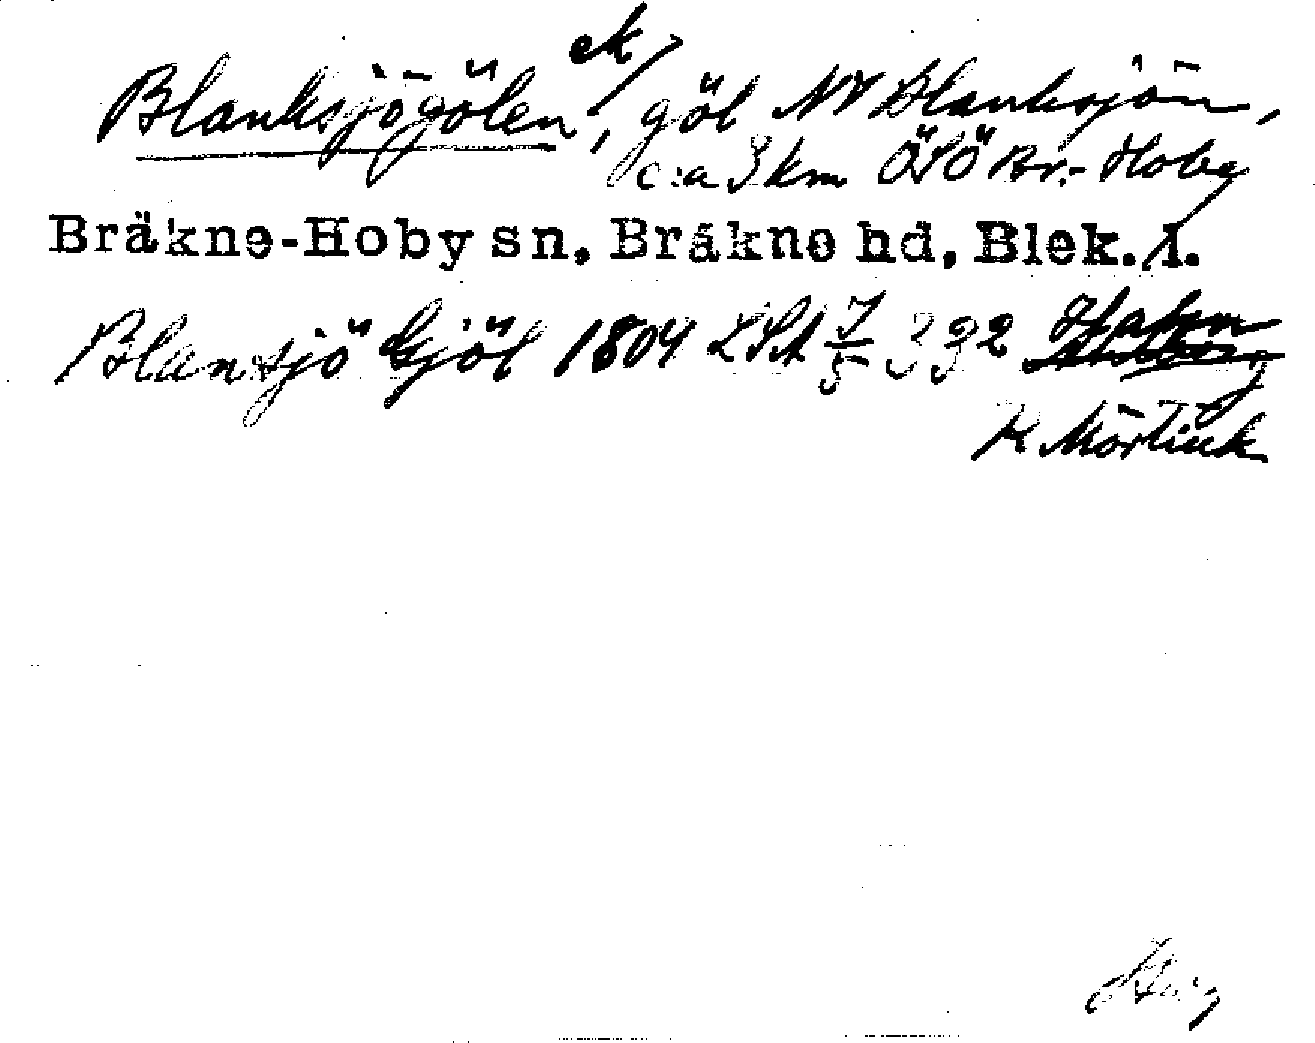 Blanksjögölen ek, göl NV Blanksjön,
c:a 3 km ÖSÖ Br.-Hoby
Bräkne-Hoby sn, Bräkne hd, Blek. l.
Blansjö Gjöl 1804 LSA 7/5 332
K Mörtink